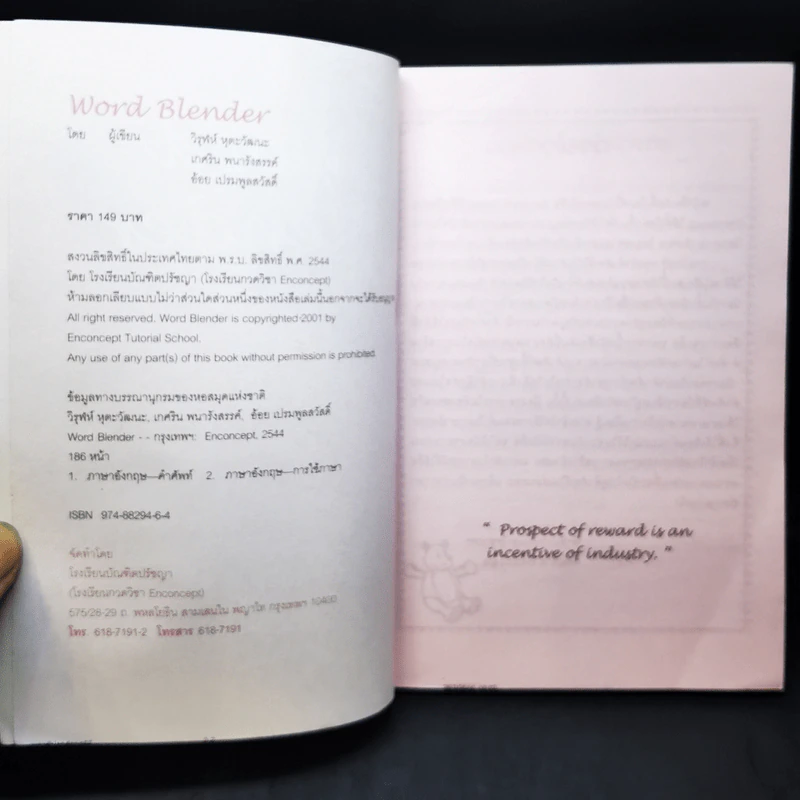 Word Blender
โดย ผู้เขียน วิรุฬห์ หุตะวัฒนะ
เกศริน พนารังสรรค์
อ้อย เปรมพูลสวัสดิ์
ราคา 149 บาท
สงวนลิขสิทธิ์ในประเทศไทยตาม พ.ร.บ. ลิขสิทธิ์ พ.ศ. 2544
โดย โรงเรียนบัณฑิตปรัชญา (โรงเรียนกวดวิชา Enconcept)
ห้ามลอกเลียบแบบไม่ว่าส่วนใดส่วนหนึ่งของหนังสือเล่มนี้นอกจากจะได้รับ
All right reserved. Word Blender is copyrighted 2001 by
Enconcept Tutorial School.
Any use of any part(s) of this book without permission is prohibited.
ข้อมูลทางบรรณานุกรมของหอสมุดแห่งชาติ
วิรุฬห์ หุตะวัฒนะ, เกศริน พนารังสรรค์, อ้อย เปรมพูลสวัสดิ์
Word Blender - - กรุงเทพฯ: Enconcept, 2544
186 หน้า
1. ภาษาอังกฤษ—คำศัพท์ 2. ภาษาอังกฤษ—การใช้ภาษา
ISBN 974-88294-6-4
จัดทำโดย
โรงเรียนบัณฑิตปรัชญา
(โรงเรียนกวดวิชา Enconcept)
575/28-29 ถ. พหลโยธิน สามเสนใน พญาไท กรุงเทพฯ 10400
โทร. 618-7191-2 โทรสาร 618-7191
" Prospect of reward is an
incentive of industry. "